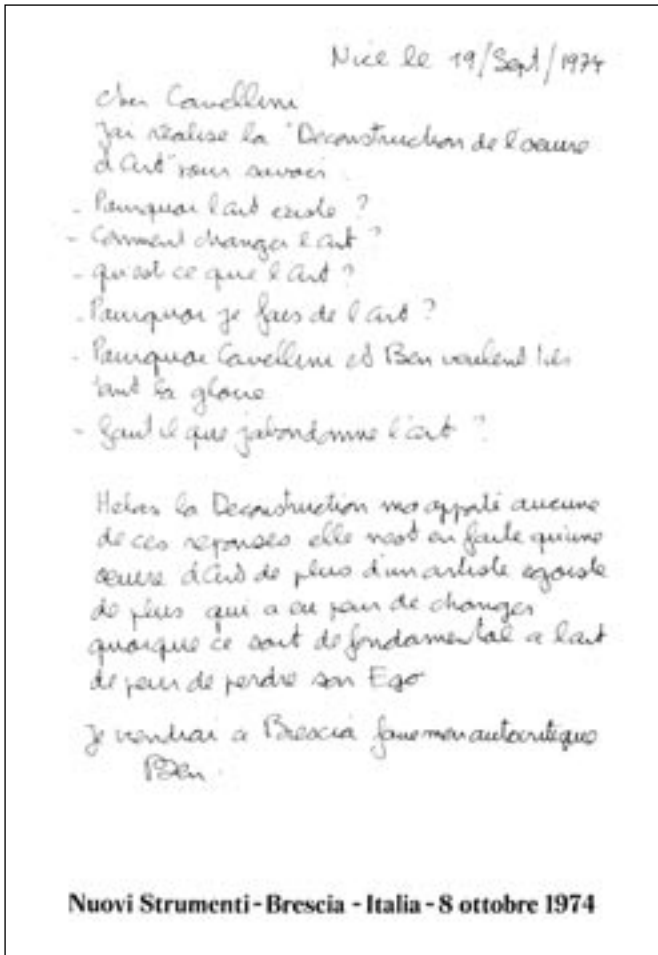 Nice le 19/Sept/1974
cher Cavellini
J'ai réalise la "Deconstruction de l'oeuvre
d'Art" pour savoir
- Pourquoi l'art existe ?
- Comment changer l'art ?
- qu'est ce que l'art ?
- Pourquoi je fais de l'art ?
- Pourquoi Cavellini et Ben veulent ils
tant la gloire
- faut il que j'abondonne l'art ?
Helas la Deconstruction m'a apporté aucune
de ces reponses elle n'est en faite qu'une
oeuvre d'art de plus d'un artiste egoiste
de plus qui a eu peur de changer
quoique ce soit de fondamental a l'art
de peur de perdre son Ego
Je viendrai a Brescia faire mon autocritique
Ben.
Nuovi Strumenti - Brescia - Italia - 8 ottobre 1974